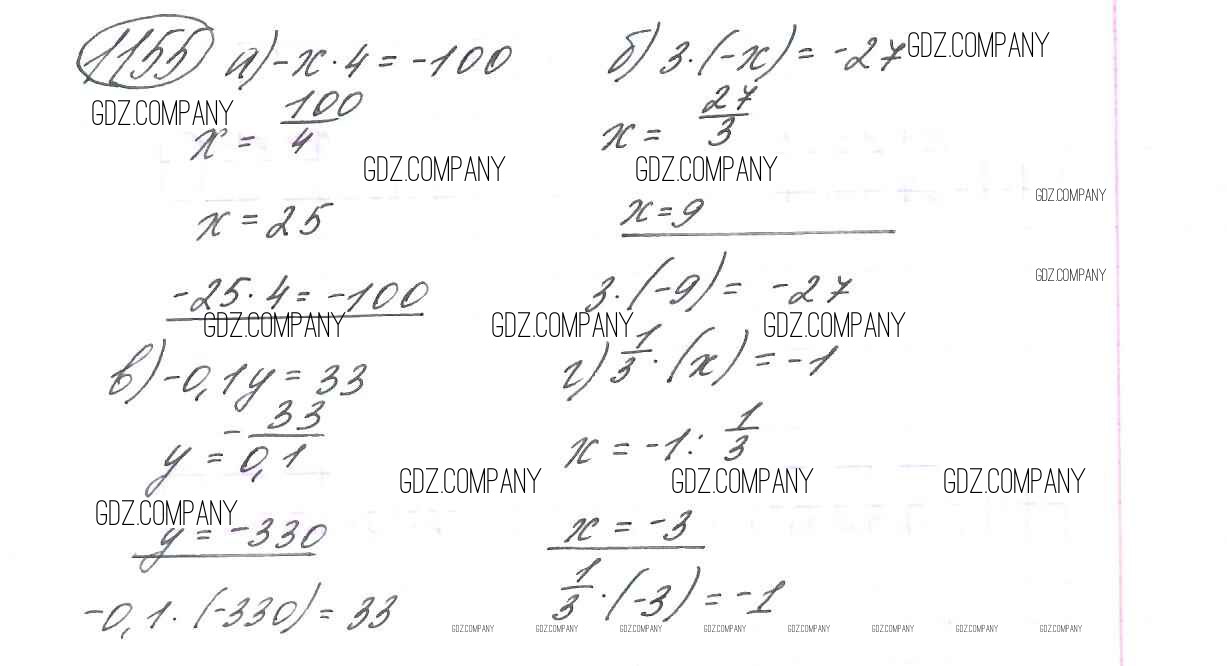 1155 а) -x · 4 = -100
б) 3 · (-x) = -27 GDZ.COMPANY
GDZ.COMPANY
x = 100/4
x = 27/3
GDZ.COMPANY GDZ.COMPANY
GDZ.COMPANY
x = 25
x = 9
GDZ.COMPANY
-25 · 4 = -100
3 · (-9) = -27
GDZ.COMPANY GDZ.COMPANY GDZ.COMPANY
в) -0,1y = 33
г) 1/3 · (x) = -1
y = -33/0,1
x = -1 : 1/3
GDZ.COMPANY GDZ.COMPANY GDZ.COMPANY
GDZ.COMPANY
y = -330
x = -3
-0,1 · (-330) = 33
1/3 · (-3) = -1
GDZ.COMPANY GDZ.COMPANY GDZ.COMPANY GDZ.COMPANY GDZ.COMPANY GDZ.COMPANY GDZ.COMPANY GDZ.COMPANY